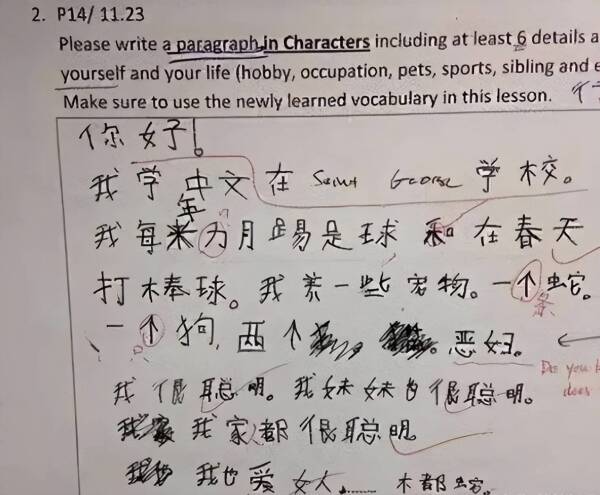 2. P14/ 11.23
Please write a paragraph in Characters including at least 6 details a
yourself and your life (hobby, occupation, pets, sports, sibling and e
Make sure to use the newly learned vocabulary in this lesson.
你好!
我学中文在 Saint George 学校。
年
我每 月踢足球和在春天
打棒球。我养一些宠物。一个蛇。
条
一个狗,两个 。恶
Do you
does
我很聪明。我妹妹也很聪明。
我家都很聪明
我也爱